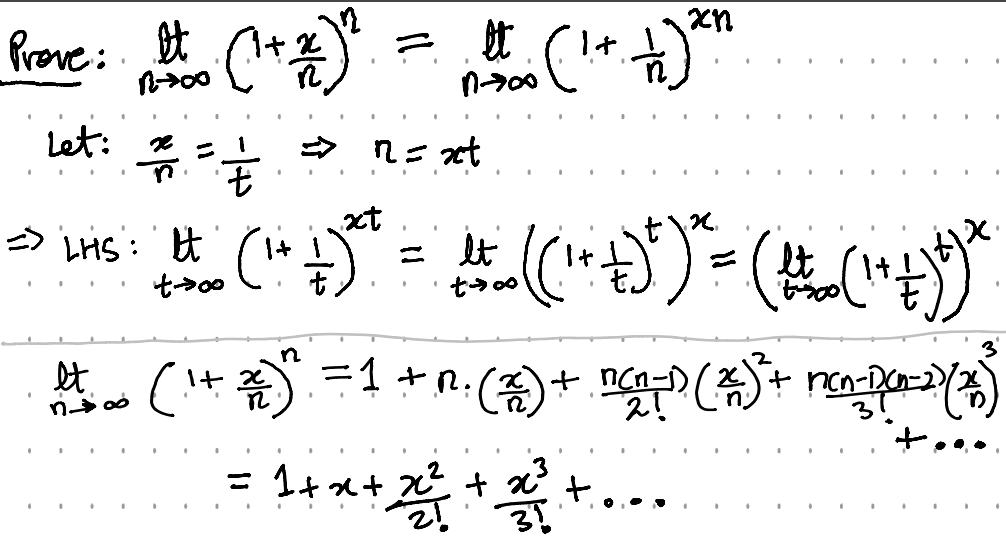 Prove: lt n→∞ (1 + x/n)^n = lt n→∞ (1 + 1/n)^xn
Let: x/n = 1/t ⇒ n = xt
⇒ LHS: lt t→∞ (1 + 1/t)^xt = lt t→∞ ((1 + 1/t)^t)^x = (lt t→∞ (1 + 1/t)^t)^x
lt n→∞ (1 + x/n)^n = 1 + n·(x/n) + n(n-1)/2! (x/n)^2 + n(n-1)(n-2)/3! (x/n)^3
+ ...
= 1 + x + x^2/2! + x^3/3! + ...